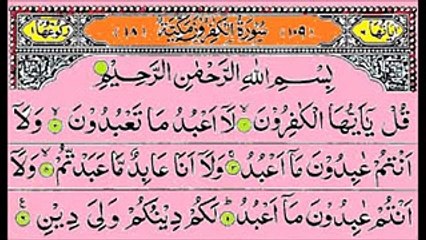 اٰیاتها ٦ (١٠٩) سُوْرَةُ الْكٰفِرُوْنَ مَكِّيَّةٌ (١٨) رکوعها ١
بِسْمِ اللّٰهِ الرَّحْمٰنِ الرَّحِيْمِ
قُلْ يٰۤاَيُّهَا الْكٰفِرُوْنَ ۙ لَاۤ اَعْبُدُ مَا تَعْبُدُوْنَ ۙ وَلَاۤ
اَنْتُمْ عٰبِدُوْنَ مَاۤ اَعْبُدُ ۚ وَلَاۤ اَنَا عَابِدٌ مَّا عَبَدْتُّمْ ۙ وَلَاۤ
اَنْتُمْ عٰبِدُوْنَ مَاۤ اَعْبُدُ ؕ لَكُمْ دِيْنُكُمْ وَلِيَ دِيْنِ